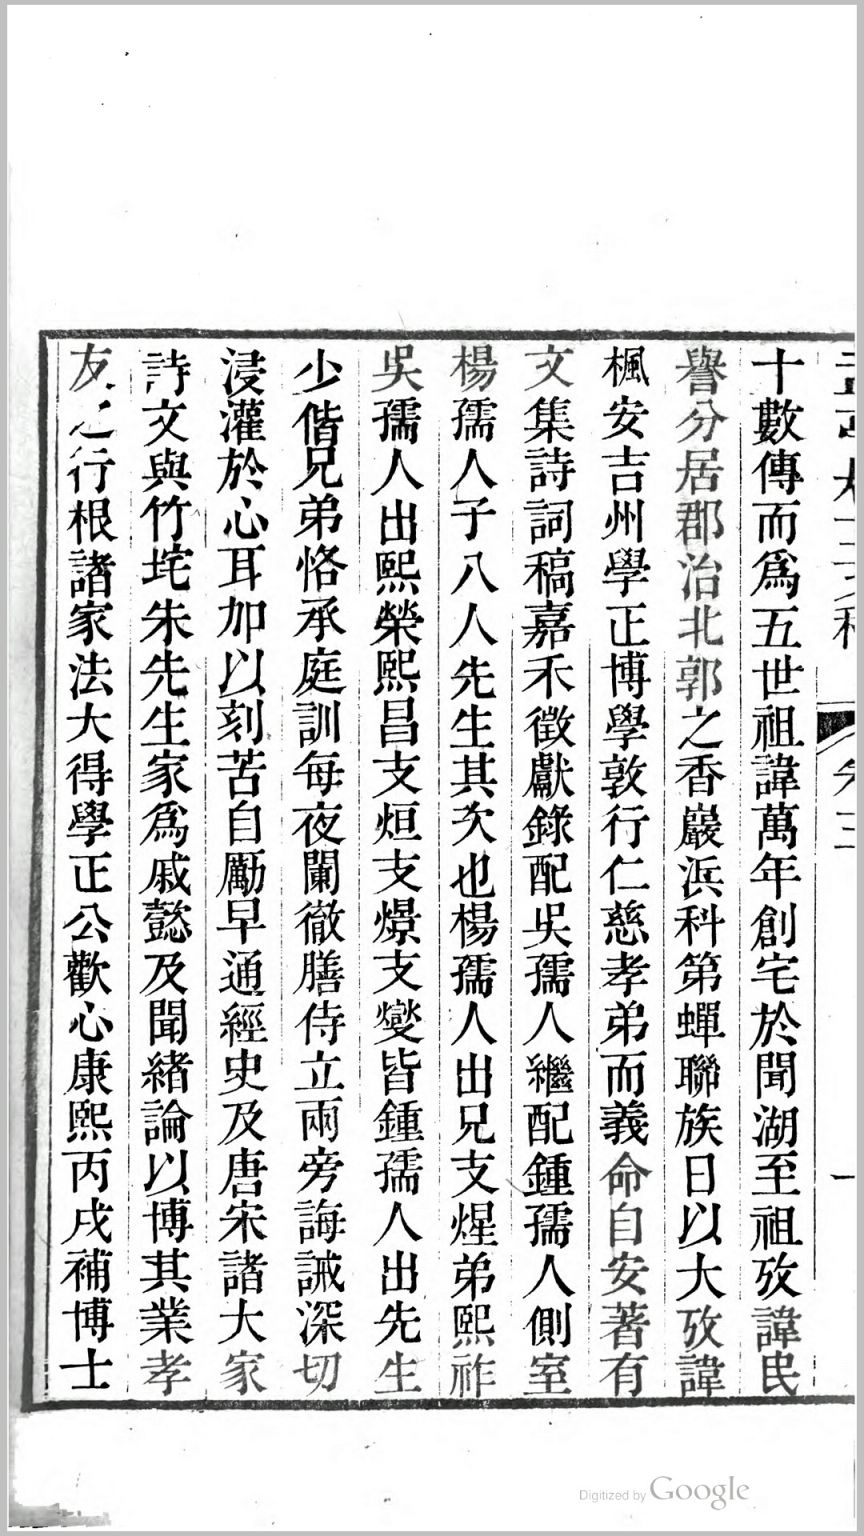 卷三
一
十數傳而爲五世祖諱萬年創宅於聞湖至祖攷諱民
譽分居郡治北郭之香巖浜科第蟬聯族日以大攷諱
楓安吉州學正博學敦行仁慈孝弟而義命自安著有
文集詩詞稿嘉禾徵獻錄配吳孺人繼配鍾孺人側室
楊孺人子八人先生其次也楊孺人出兄支煋弟熙祚
吳孺人出熙榮熙昌支烜支燝支燮皆鍾孺人出先生
少偕兄弟恪承庭訓每夜闌徹膳侍立兩旁誨誡深切
浸灌於心耳加以刻苦自勵早通經史及唐宋諸大家
詩文與竹垞朱先生家爲戚懿及聞緒論以博其業孝
友之行根諸家法大得學正公歡心康熙丙戌補博士
Digitized by Google